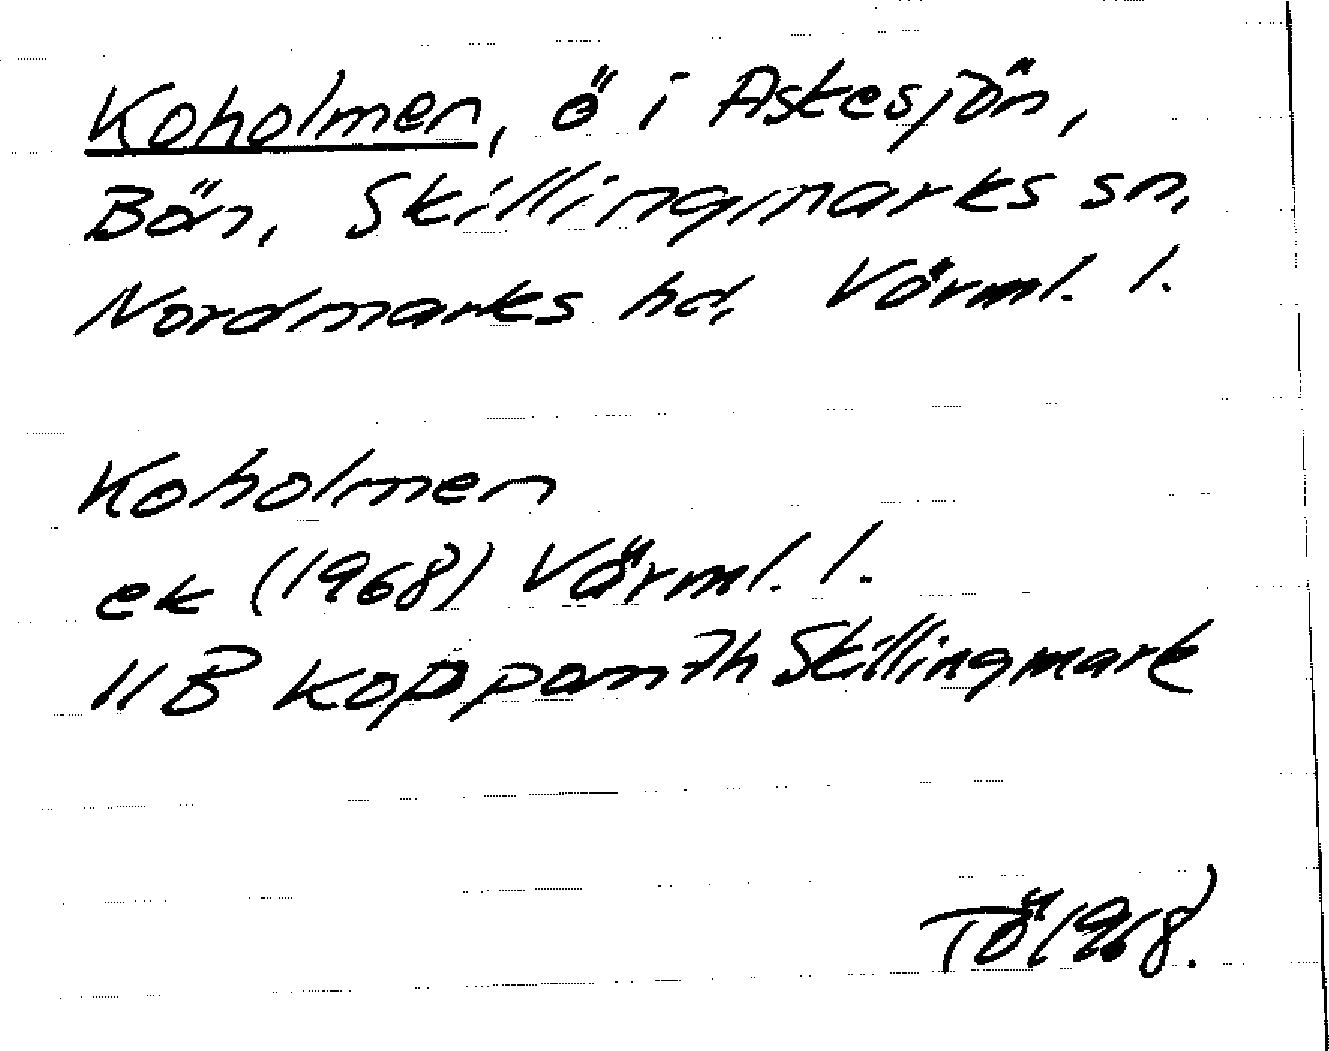 Koholmen, ö i Askesjön,
Bön, Skillingmarks sn,
Nordmarks hd, Värml. l.
Koholmen
ek (1968) Värml. l.
11B Koppom 7h Skillingmark
TÖ 1968.